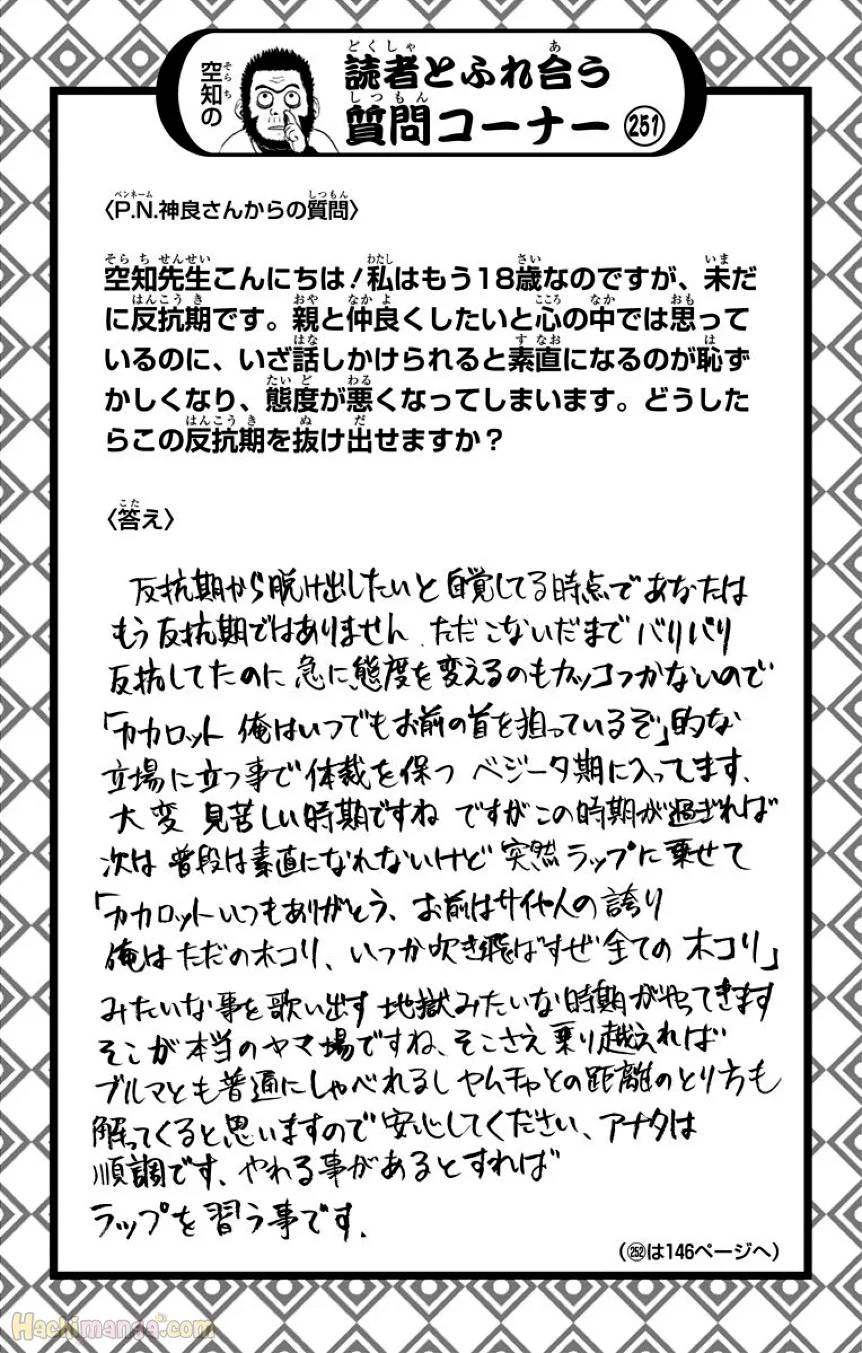 空知の
読者とふれ合う
質問コーナー 251
〈P.N.神良さんからの質問〉
空知先生こんにちは!私はもう18歳なのですが、未だ
に反抗期です。親と仲良くしたいと心の中では思って
いるのに、いざ話しかけられると素直になるのが恥ず
かしくなり、態度が悪くなってしまいます。どうした
らこの反抗期を抜け出せますか?
〈答え〉
反抗期から脱け出したいと自覚してる時点であなたは
もう反抗期ではありません ただこないだまでバリバリ
反抗してたのに急に態度を変えるのもカッコつかないので
「カカロット 俺はいつでもお前の首を狙っているぞ」的な
立場に立つ事で体裁を保つ ベジータ期に入ってます、
大変 見苦しい時期ですね ですがこの時期が過ぎれば
次は普段は素直になれないけど 突然ラップに乗せて
「カカロットいつもありがとう、お前はサイヤ人の誇り
俺はただのホコリ、いつか吹き飛ばすぜ全てのホコリ」
みたいな事を歌い出す地獄みたいな時期がやってきます
そこが本当のヤマ場ですね、そこさえ乗り越えれば
ブルマとも普通にしゃべれるし ヤムチャとの距離のとり方も
解ってくると思いますので安心してください、アナタは
順調です、やれる事があるとすれば
ラップを習う事です.
(252は146ページへ)
Hachimanga.com